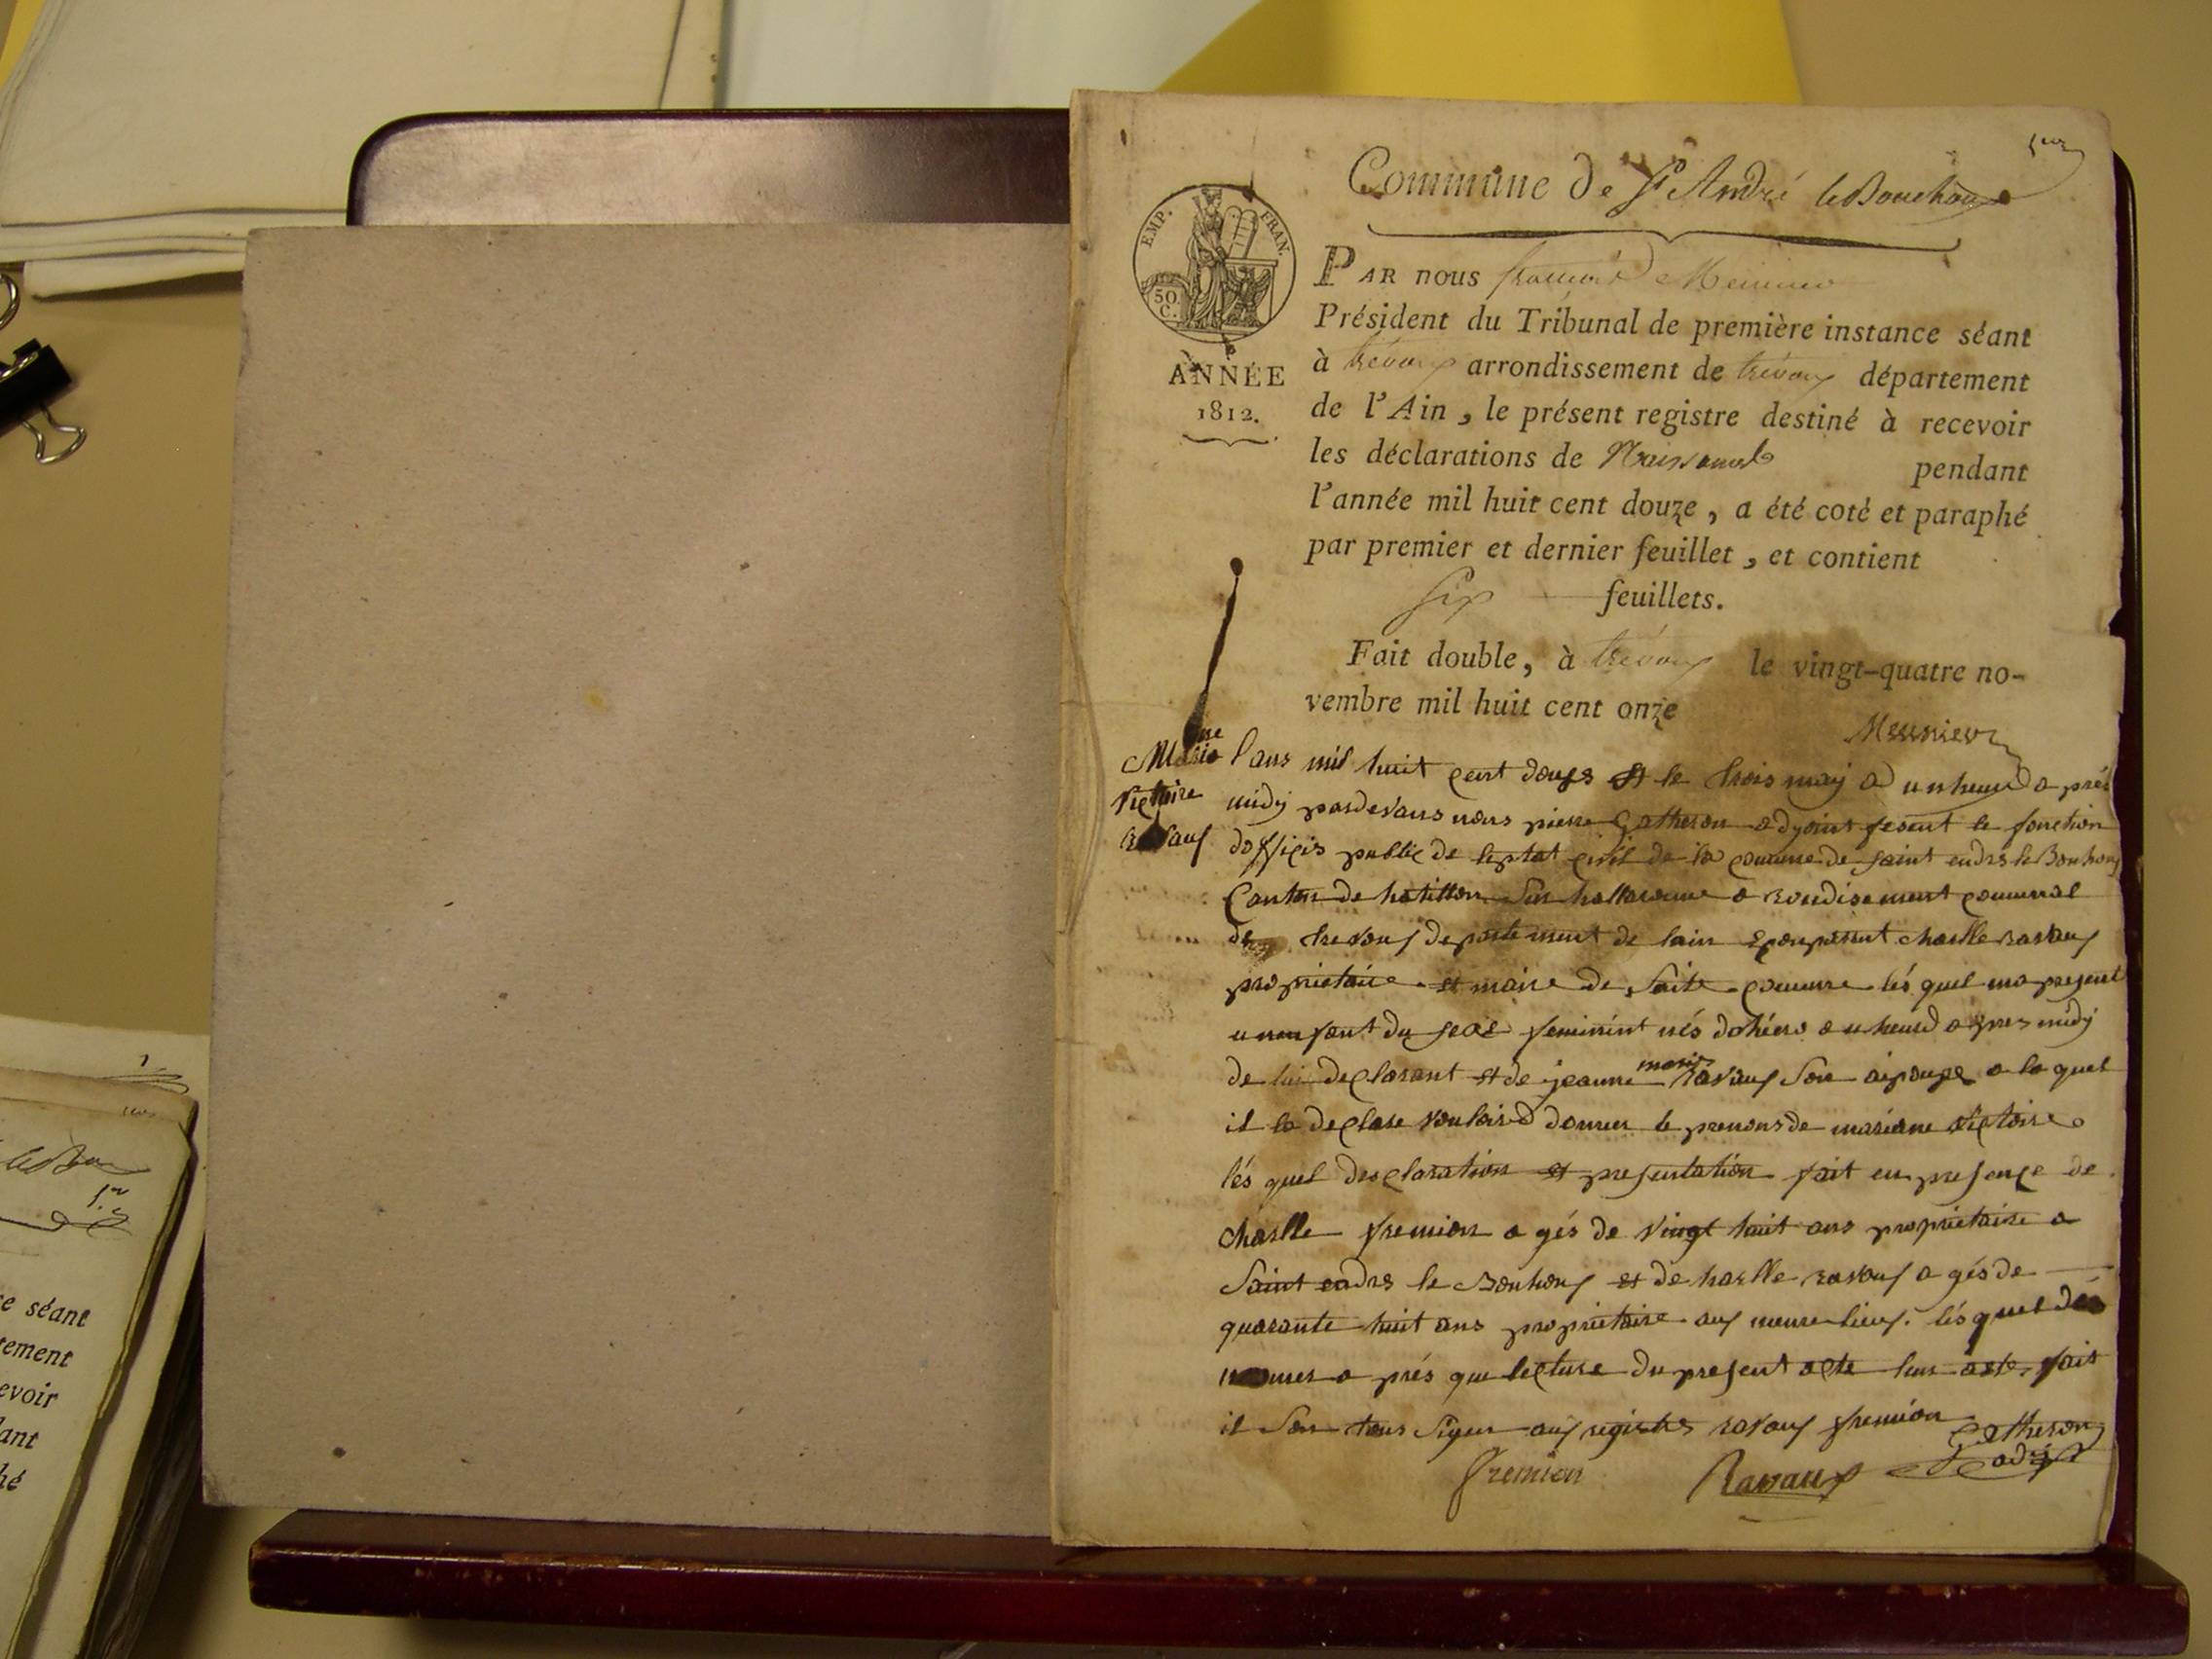 1er
Commune de St André le Bouchoux
EMP. FRAN.
50. C.
ANNÉE
1812.
PAR nous françois Meunier
Président du Tribunal de première instance séant
à trévoux arrondissement de trévoux département
de l'Ain, le présent registre destiné à recevoir
les déclarations de Naissances pendant
l'année mil huit cent douze, a été coté et paraphé
par premier et dernier feuillet, et contient
six feuillets.
Fait double, à trévoux le vingt-quatre no-
vembre mil huit cent onze
Meunier
Marie
Victoire
ravaux
l'ans mil huit cent douzs et le trois may a un heure a prés
midy pardevans nous pierre Gatheron adjoint fesent le fonction
dofficis public de leptat civil de la comune de saint endrs le Bouhoux
Canton de hatillon sur hallaronne a rondisement comunal
de trevoux departement de lain comparent charlle ravaux
proprietaire et maire de saite comune lés quel ma present
un enfant du sexe feminint nés dohiero a un heure apres midy
de lui declarant et de jeanne marie ravaux son aipouze a la quel
il la declare vouloire donner le prenons de mariane victoire
lés quel desclaration et presentation fait en presence de
charlle fremion a gés de vingt huit ans proprietaire a
saint endrs le Bouhoux et de harlle ravoux a gés de
quarante huit ans proprietaire aux meme lieux. lés quel dés
nomer a prés que lecture du present acte leur aste fait
il son tous signer aux registrs ravaux fremion Gatheron
adj
fremion Ravaux
e séant
tement
evoir
ant
hé